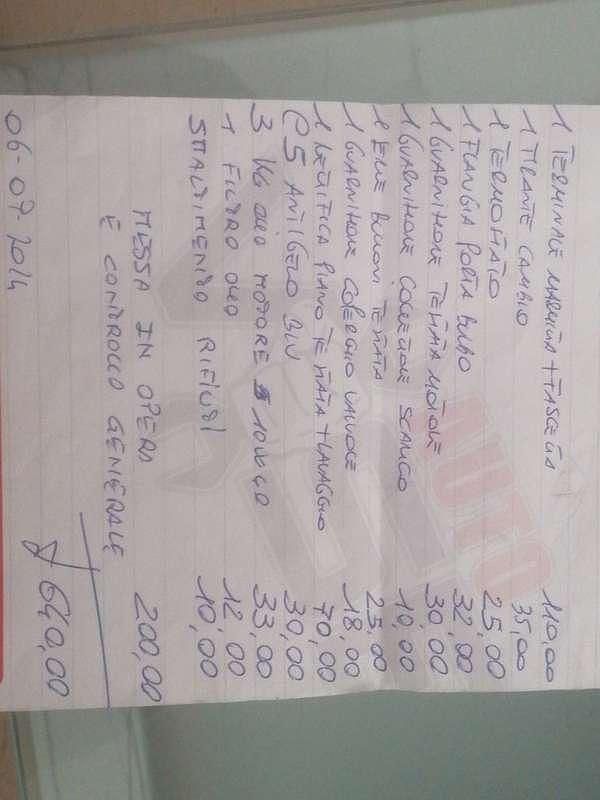 1 TERMINALE MARMITTA + FASCETTA 110,00
1 TIRANTE CAMBIO 35,00
1 TERMOSTATO 25,00
1 FLANGIA PORTA BULBO 32,00
1 GUARNIZIONE TESTATA MOTORE 30,00
1 GUARNIZIONE COLLETTORE SCARICO 10,00
1 BULLONI TESTATA 25,00
1 GUARNIZIONE COPERCHIO VALVOLE 18,00
1 RETTIFICA PIANO TESTATA + LAVAGGIO 70,00
5 ANTIGELO BLU 30,00
3 KG OLIO MOTORE 10W40 33,00
1 FILTRO OLIO 12,00
SMALTIMENTO RIFIUTI 10,00
MESSA IN OPERA 200,00
E CONTROLLO GENERALE
640,00
06-07-2014
AUTO